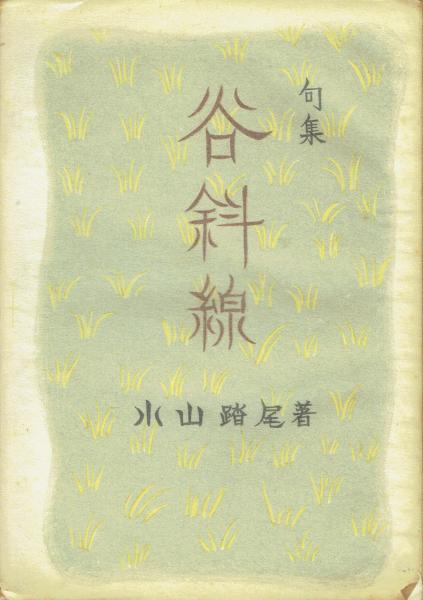 句集
谷斜線
小山踏尾著